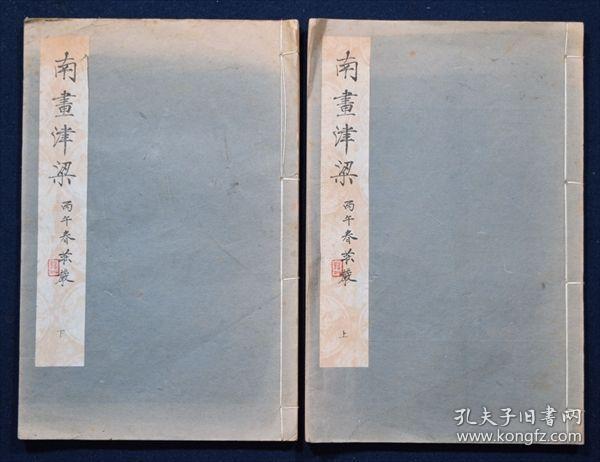 南畫津梁
丙午春
下
南畫津梁
丙午春
上
孔夫子旧書网
www.kongfz.com